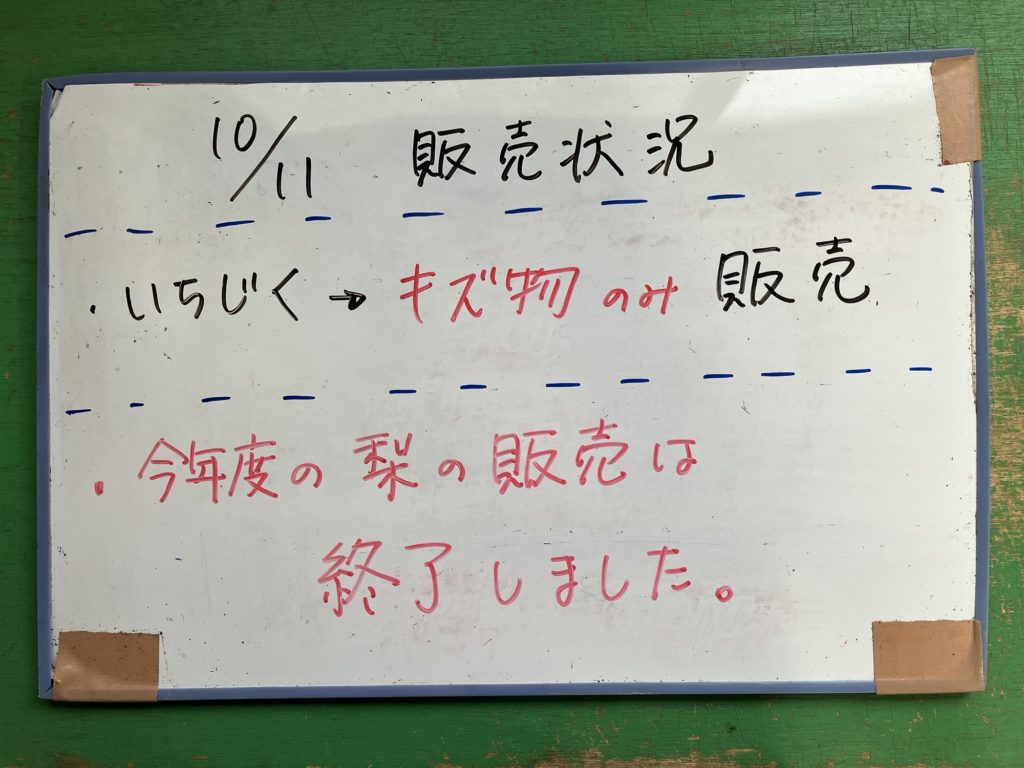 10/11 販売状況
・いちじく→キズ物のみ販売
・今年度の梨の販売は
終了しました。